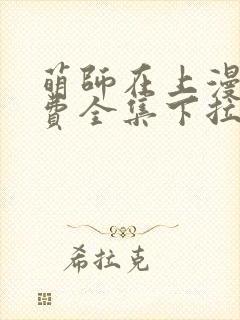 萌師在上漫
費全集下拉
希拉克